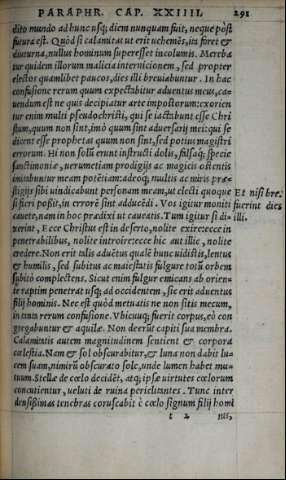 PARAPHR. CAP. XXIIII. 291
dito mundo ad hunc usq; diem nunquam fuit, neque pòst
futura est. Quòd si calamitas ut erit uehemẽs, ita foret &
diuturna, nullus hominum superesset incolumis. Mereba
tur quidem illorum malicia internicionem, sed propter
electos quamlibet paucos, dies illi breuiabuntur. In hac
confusione rerum quum expectabitur aduentus meus, ca-
uendum est ne quis decipiatur arte impostorum: exorien
tur enim multi pseudochristi, qui se iactabunt esse Chri
stum, quum non sint, imò quum sint aduersarij mei: qui se
dicent esse prophetas quum non sint, sed potius magistri
errorum. Hi non solũ erunt instructi dolis, falsaq; specie
sanctimoniæ, uerumetiam prodigijs ac magicis ostentis
imitabuntur meam potẽtiam: adeoq; multis ac miris præ-
stigijs sibi uindicabunt personam meam, ut electi quoque
si fieri possit, in errorẽ sint adducẽdi. Vos igitur moniti
cauete, nam in hoc prædixi ut caueatis. Tum igitur si di-
xerint, Ecce Christus est in deserto, nolite exire: ecce in
penetrabilibus, nolite introire: ecce hic aut illic, nolite
credere. Non erit talis aduẽtus qualẽ hunc uidistis, lentus
& humilis, sed subitus ac maiestatis fulgure totũ orbem
subitò complectens. Sicut enim fulgur emicans ab orien-
te raptim penetrat usq; ad occidentem, sic erit aduentus
filij hominis. Nec est quòd metuatis ne non sitis mecum,
in tanta rerum confusione. Vbicunq; fuerit corpus, eò con
gregabuntur & aquilæ. Non deerũt capiti sua membra.
Calamitatis autem magnitudinem sentient & corpora
cœlestia. Nam & sol obscurabitur, & luna non dabit lu-
cem suam, nimirũ obscurato sole, unde lumen habet mu-
tuum. Stellæ de cœlo decidẽt, atq; ipsæ uirtutes cœlorum
concutientur, ueluti de ruina periclitantes. Tunc inter
densissimas tenebras coruscabit è cœlo signum filij homi
t 2 nis,
Et nisi bre.
fuerint dies
illi.